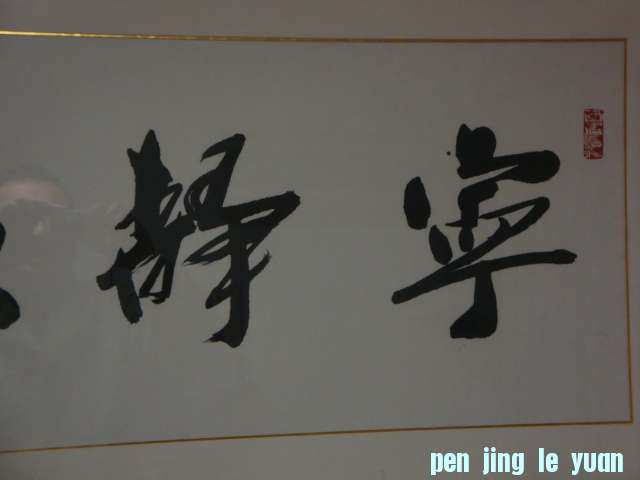 寧靜
pen jing le yuan